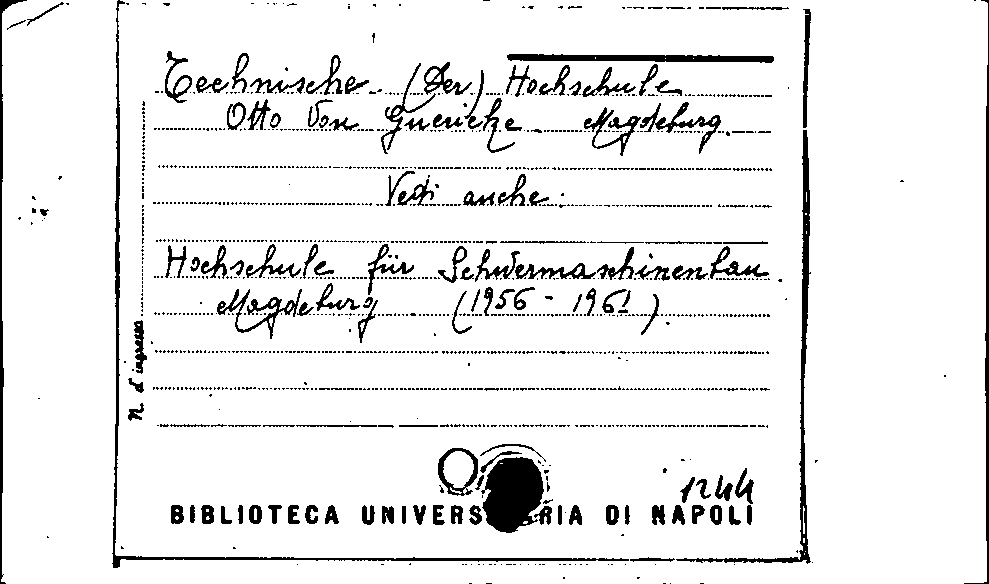 Technische (Der) Hochschule
Otto Von Guericke. Magdeburg.
Vedi anche:
Hochschule für Schwermaschinenbau.
Magdeburg. (1956 - 1961).
N. d'ingresso
1244
BIBLIOTECA UNIVERS RIA DI NAPOLI